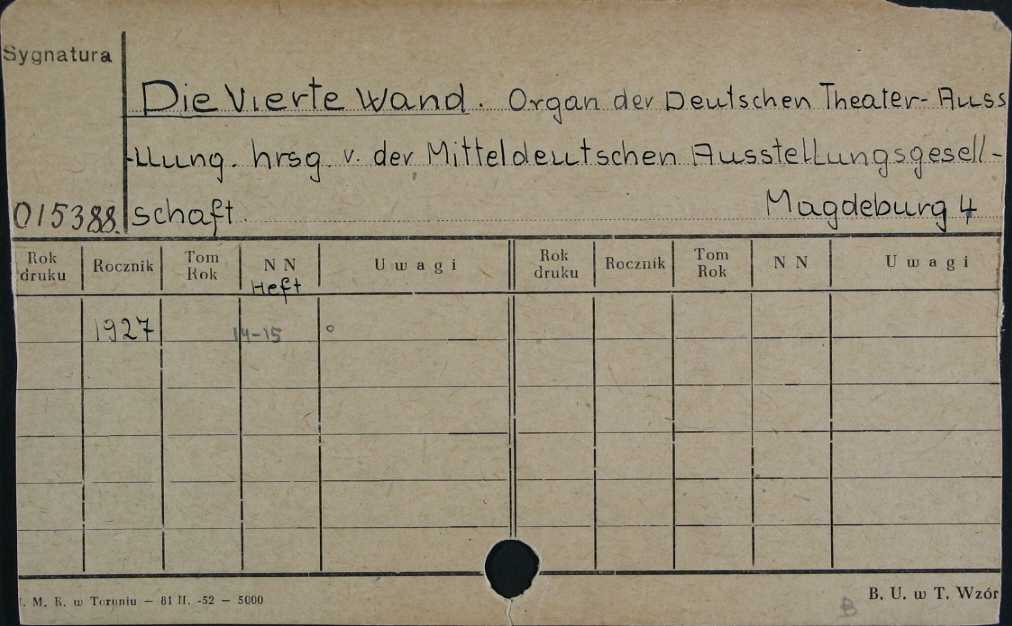 Sygnatura
Die Vierte Wand. Organ der Deutschen Theater-Auss
-llung. hrsg. v. der Mitteldeutschen Ausstellungsgesell-
015388. schaft. Magdeburg 4
Rok druku Rocznik Tom Rok NN Uwagi Rok druku Rocznik Tom Rok NN Uwagi
Heft
1927 14-15
. M. K. w Toruniu — 81 II. -52 — 5000
B. U. w T. Wzór
B